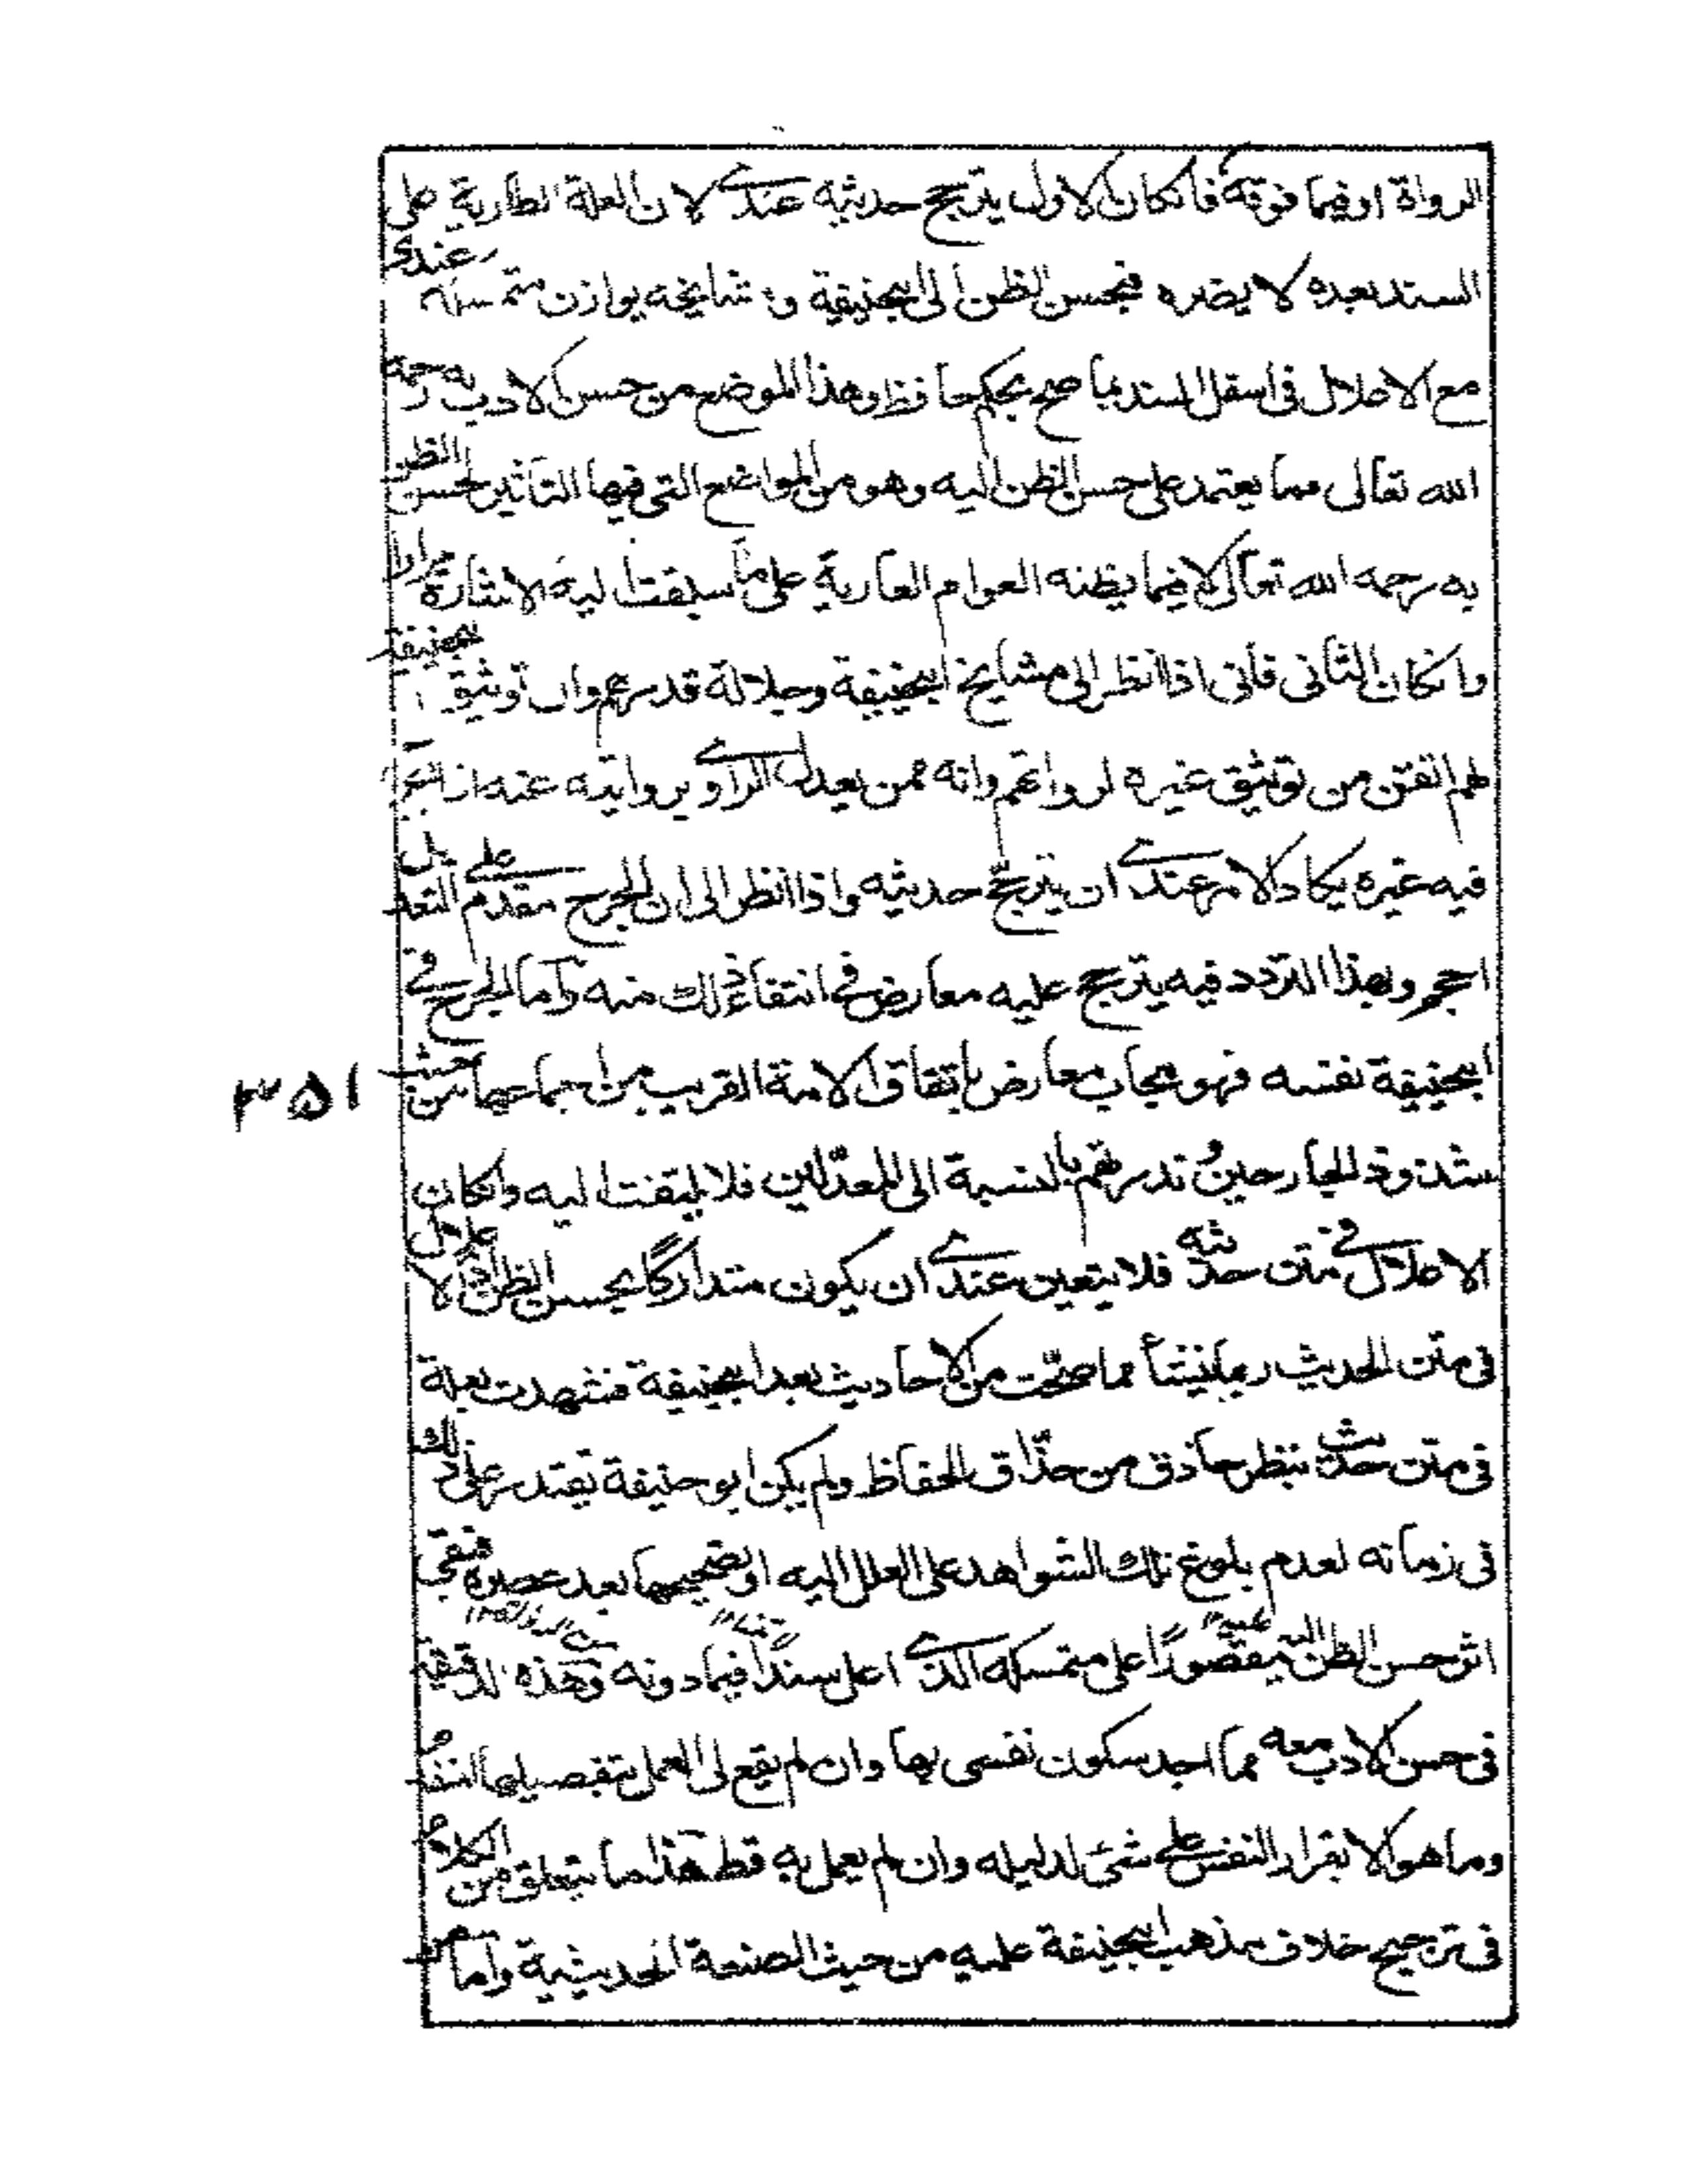 الرواة او فيما فوقه فانكان الاول يترجح حديثه عندي لان العلة الطارية على
السند بعده لا يضره فبحسن الظن الى ابيحنيفة ومشايخه يوازن متمسكه عندي
مع الاعلال فى اسفل السند بما صح بحكم حافظ وهذا الموضع من حسن الادب به رحمه
الله تعالى مما يعتمد على حسن الظن اليه وهو من المواضع التى فيها التأثير لحسن الظن
به رحمه الله تعالى لا فيما يظنه العوام العارية على ما سبقت اليه الاشارة مرارا
وانكان الثانى فانى اذا انظر الى مشايخ ابيحنيفة وجلالة قدرهم وان توثيق ابيحنيفة
لهم اتقن من توثيق غيره لرواتهم وانه ممن يعدل الراوي بروايته عنه ان لم يجرح
فيه غيره يكاد الامر عندي ان يترجح حديثه واذا انظر الى ان الجرح مقدم على التعديل
احجم وبهذا التردد فيه يترجح عليه معارض فى انتفاء ذلك منه واما الجرح في
ابيحنيفة نفسه فهو مجاب معارض باتفاق الامة القريب من اجماعها من حيث
شذوذ الجارحين وندرتهم بالنسبة الى المعدّلين فلا يلتفت اليه وانكان
الاعلال في متن حديثه فلا يتعين عندي ان يكون متداركًا بحسن الظن لان الاعلال
فى متن الحديث ربما ينشأ مما صحّت من الاحاديث بعد ابيحنيفة فشهدت بعلة
فى متن حديث بنظر حاذق من حذّاق الحفاظ ولم يكن ابو حنيفة يقتدر على ذلك
فى زمانه لعدم بلوغ تلك الشواهد على العلل اليه او تصحيحها بعد عصره فبقى
اثر حسن الظن اليه مقصورًا على متمسكه الذي اعل سندًا فيما دونه وهذه الدقيقة
فى حسن الادب معه مما اجد سكون نفسى بها وان لم يقع لى العمل بتفصيلها
وما هو الا بقرار النفس على شئ لدليله وان لم يعمل به قط هذا ما يتعلق من الكلام
فى ترجيح خلاف مذهب ابيحنيفة عليه من حيث الصنعة الحديثية واما من
٣٥١